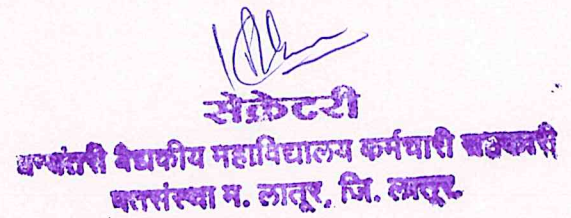 सेक्रेटरी
वैद्यकीय महाविद्यालय कर्मचारी सहकारी
पतसंस्था म. लातूर, जि. लातूर.